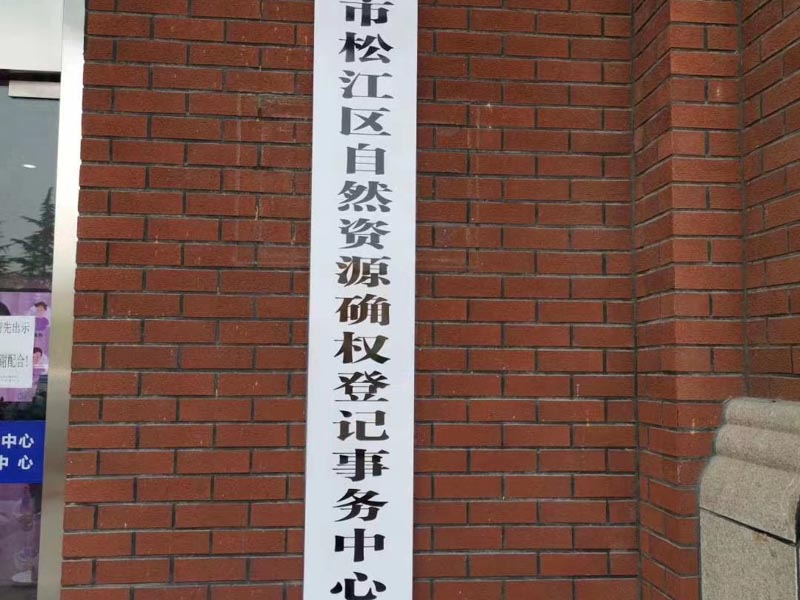 市松江区自然资源确权登记事务中心
先出示
谢配合！
中心
中心